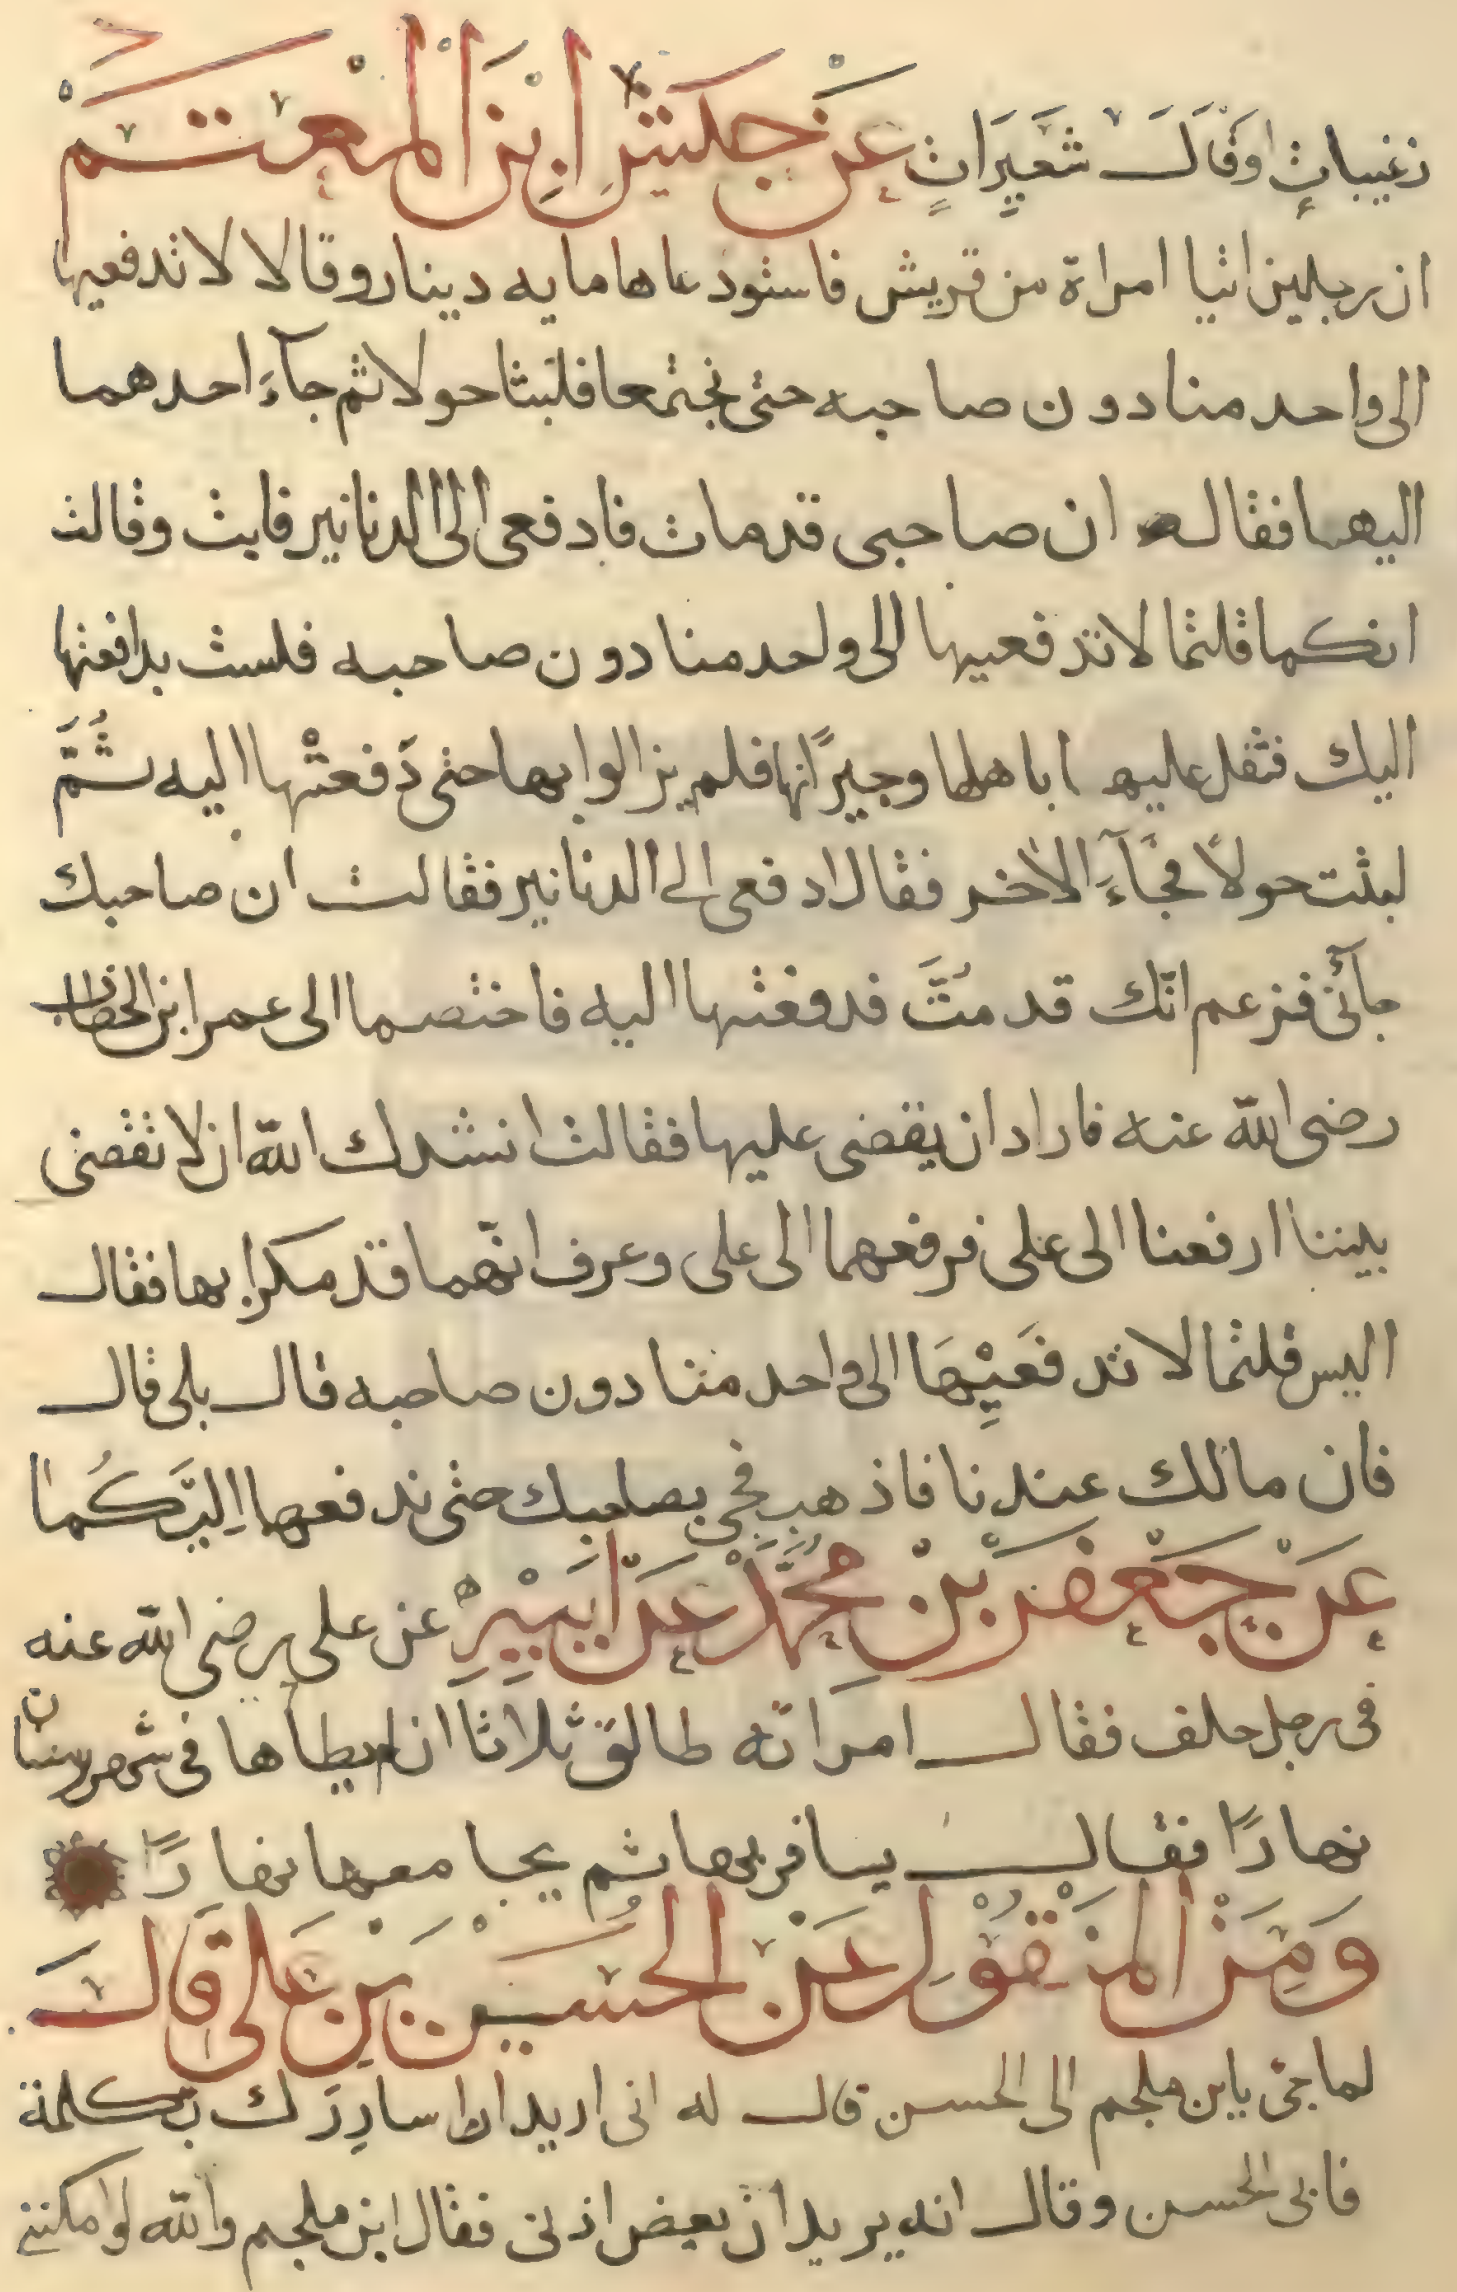 زغيبات اوقال شعيرات عن حنش ابن المعتمر
ان رجلين اتيا امراة من قريش فاستودعاها مايه دينار وقالا لا تدفعيها
الى واحد منا دون صاحبه حتى نجتمعا فلبثا حولا ثم جآء احدهما
اليها فقال ان صاحبى قد مات فادفعى الى الدنانير فابت وقالت
انكما قلتما لا تدفعيها الى واحد منا دون صاحبه فلست بدافعتها
اليك فثقل عليها باهلها وجيرانها فلم يزالوا بها حتى دفعتْها اليه ثُمَّ
لبثت حولاً فجآءَ الاخر فقال ادفعى الى الدنانير فقالت ان صاحبك
جآئنى فزعم انّك قد مُتَّ فدفعتها اليه فاختصما الى عمر ابن الخطاب
رضى الله عنه فاراد ان يقضى عليها فقالت انشدك الله ان لا تقضى
بيننا ارفعنا الى على فرفعهما الى على وعرف انّهما قد مكرا بها فقال
اليس قلتما لا تدفعَيِْهَا الى واحد منا دون صاحبه قال بلى قال
فان مالك عندنا فاذهب فجى بصاحبك حتى ندفعها اِليَكُما
عَنْ جَعْفَرَ بْنْ مُحَمَّدْ عَنْ اَبِيْهِ عن على رضى الله عنه
فى رجل حلف فقال امراته طالق ثلاثا ان لم يطأها فى شهر رمضان
نهارًا فقال يسافر بها ثم يجامعها نهارًا
وَمِنَ المنقُوْلِ عَنْ الحُسَيْن بن على قال
لما جئ بابن ملجم الى الحسن قال له انى اريد ان اسارِرَك بكلمة
فابى الحسن وقال انه يريد ان يعض اذنى فقال ابن ملجم والله لو امكننى